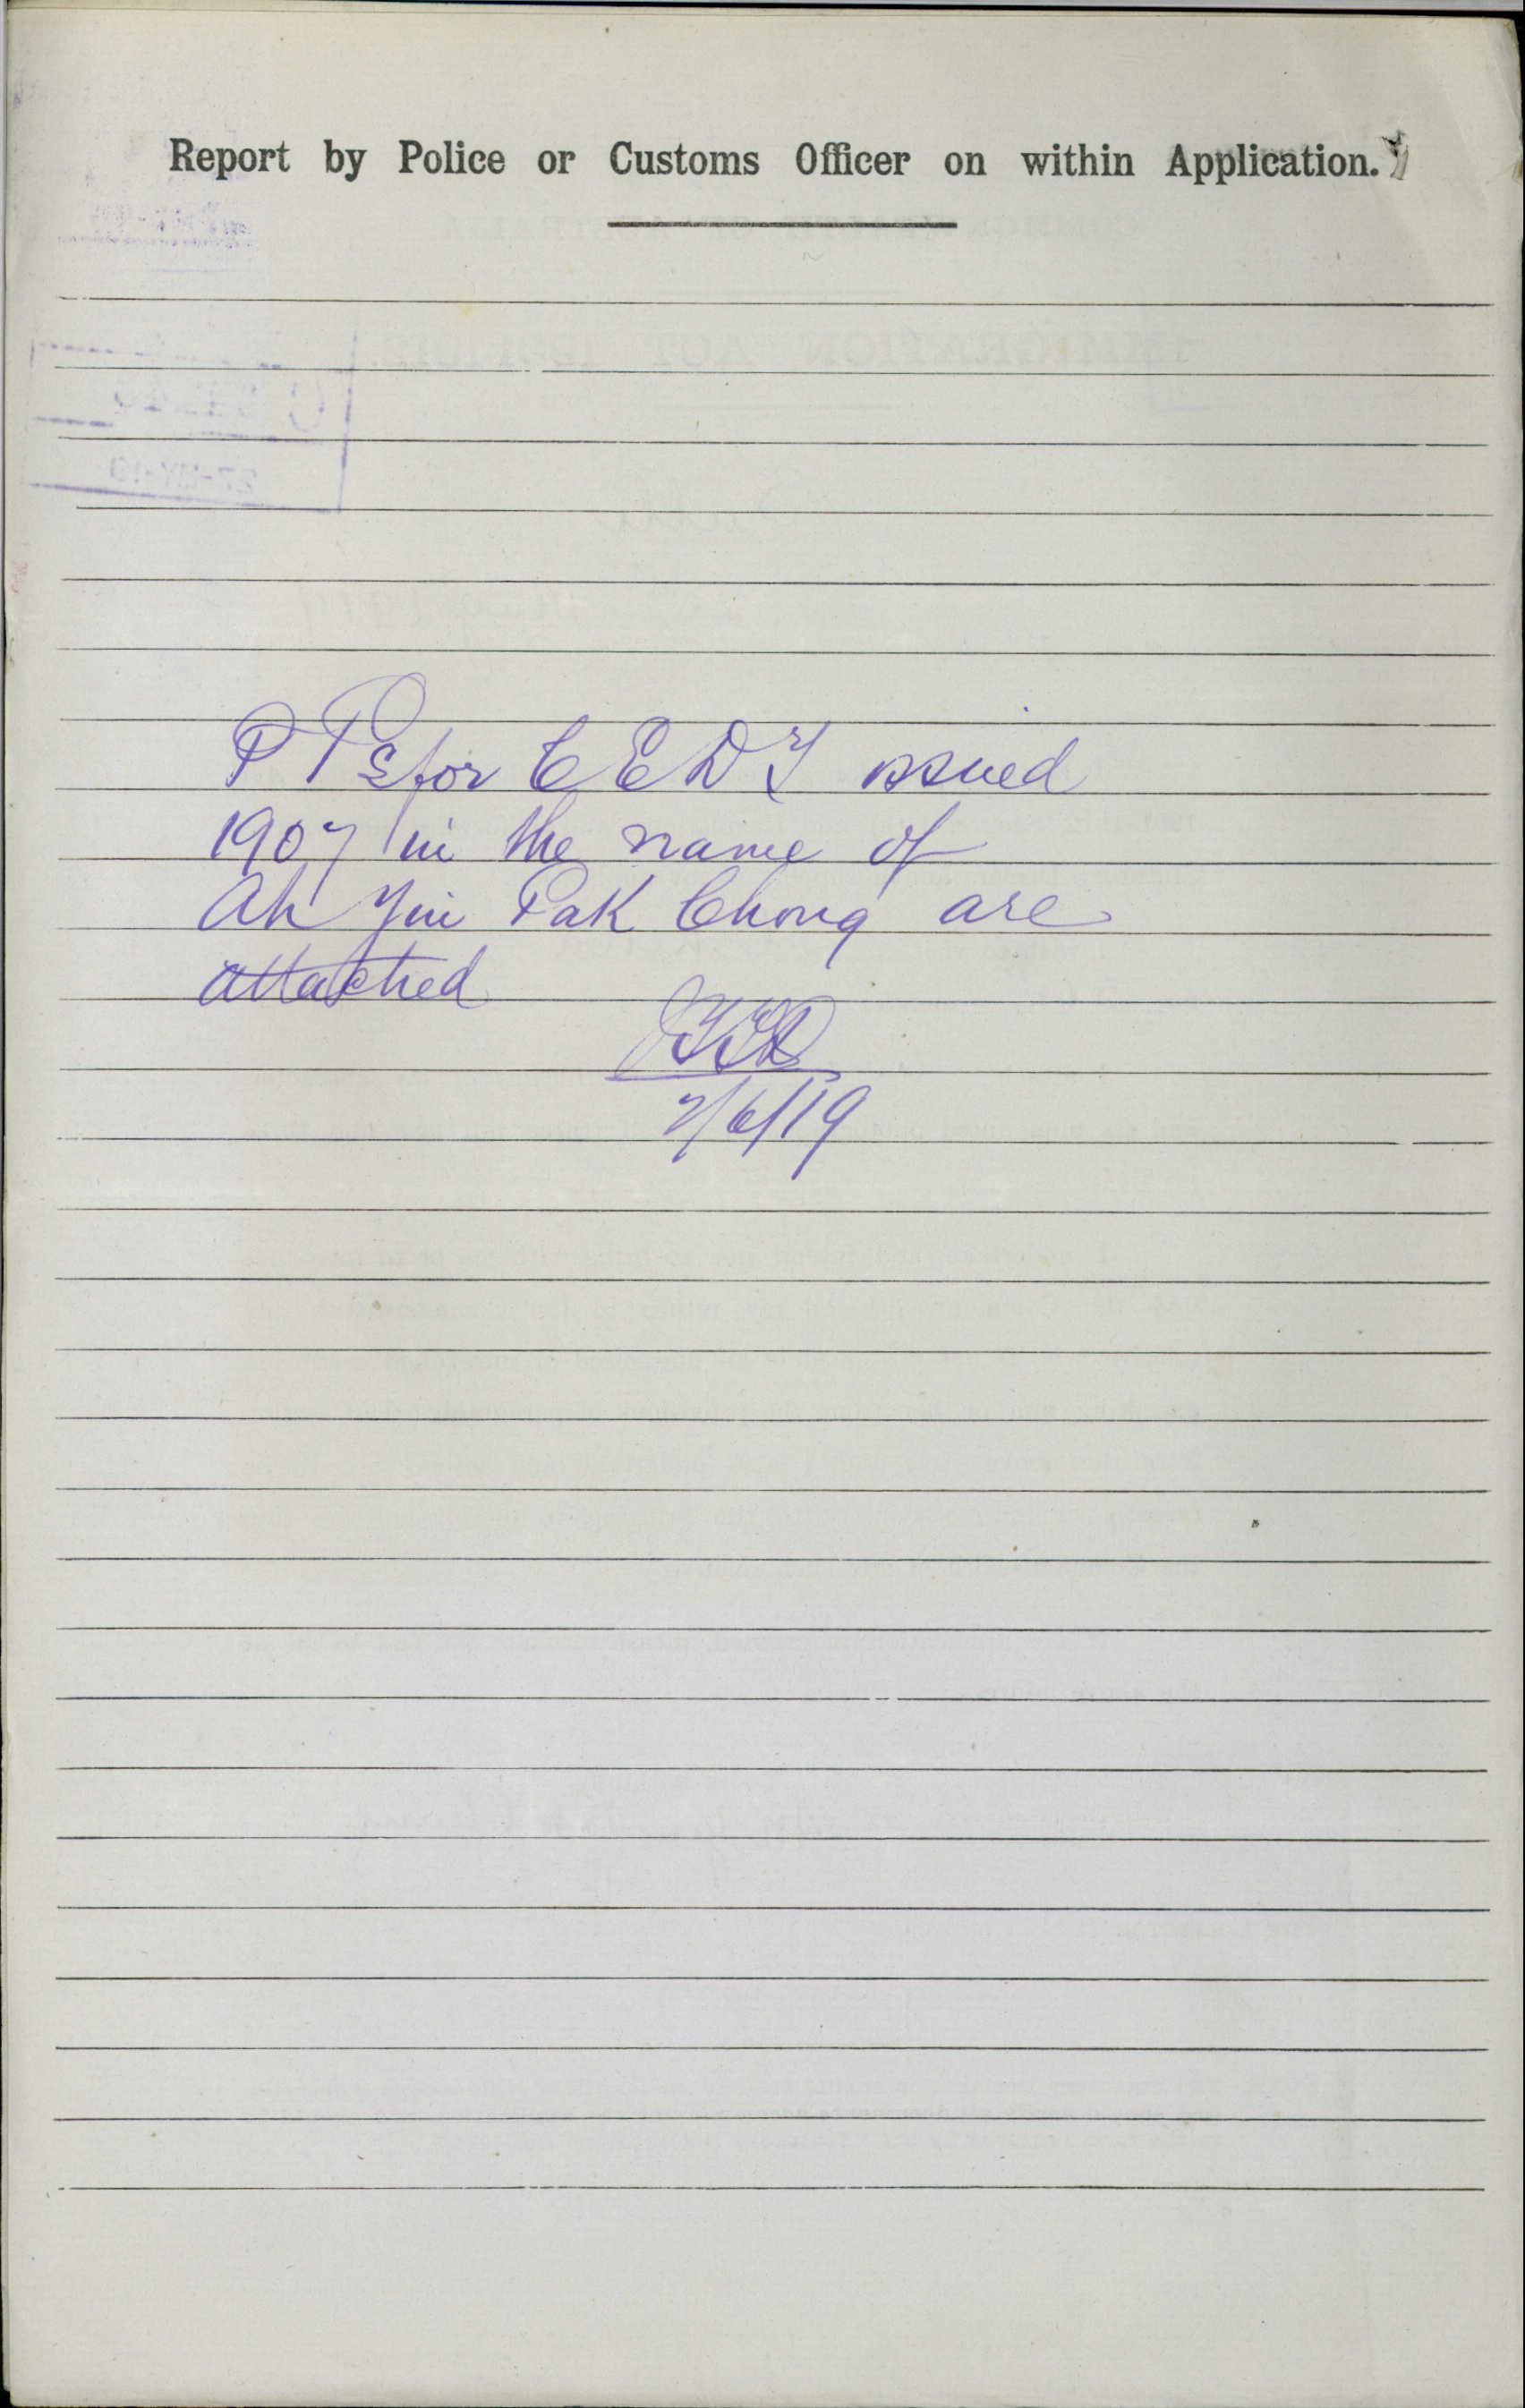 Report by Police or Customs Officer on within Application.
P Ps for C E D T issued
1907 in the name of
Ah Yin Pak Chong are
attached
2/6/19